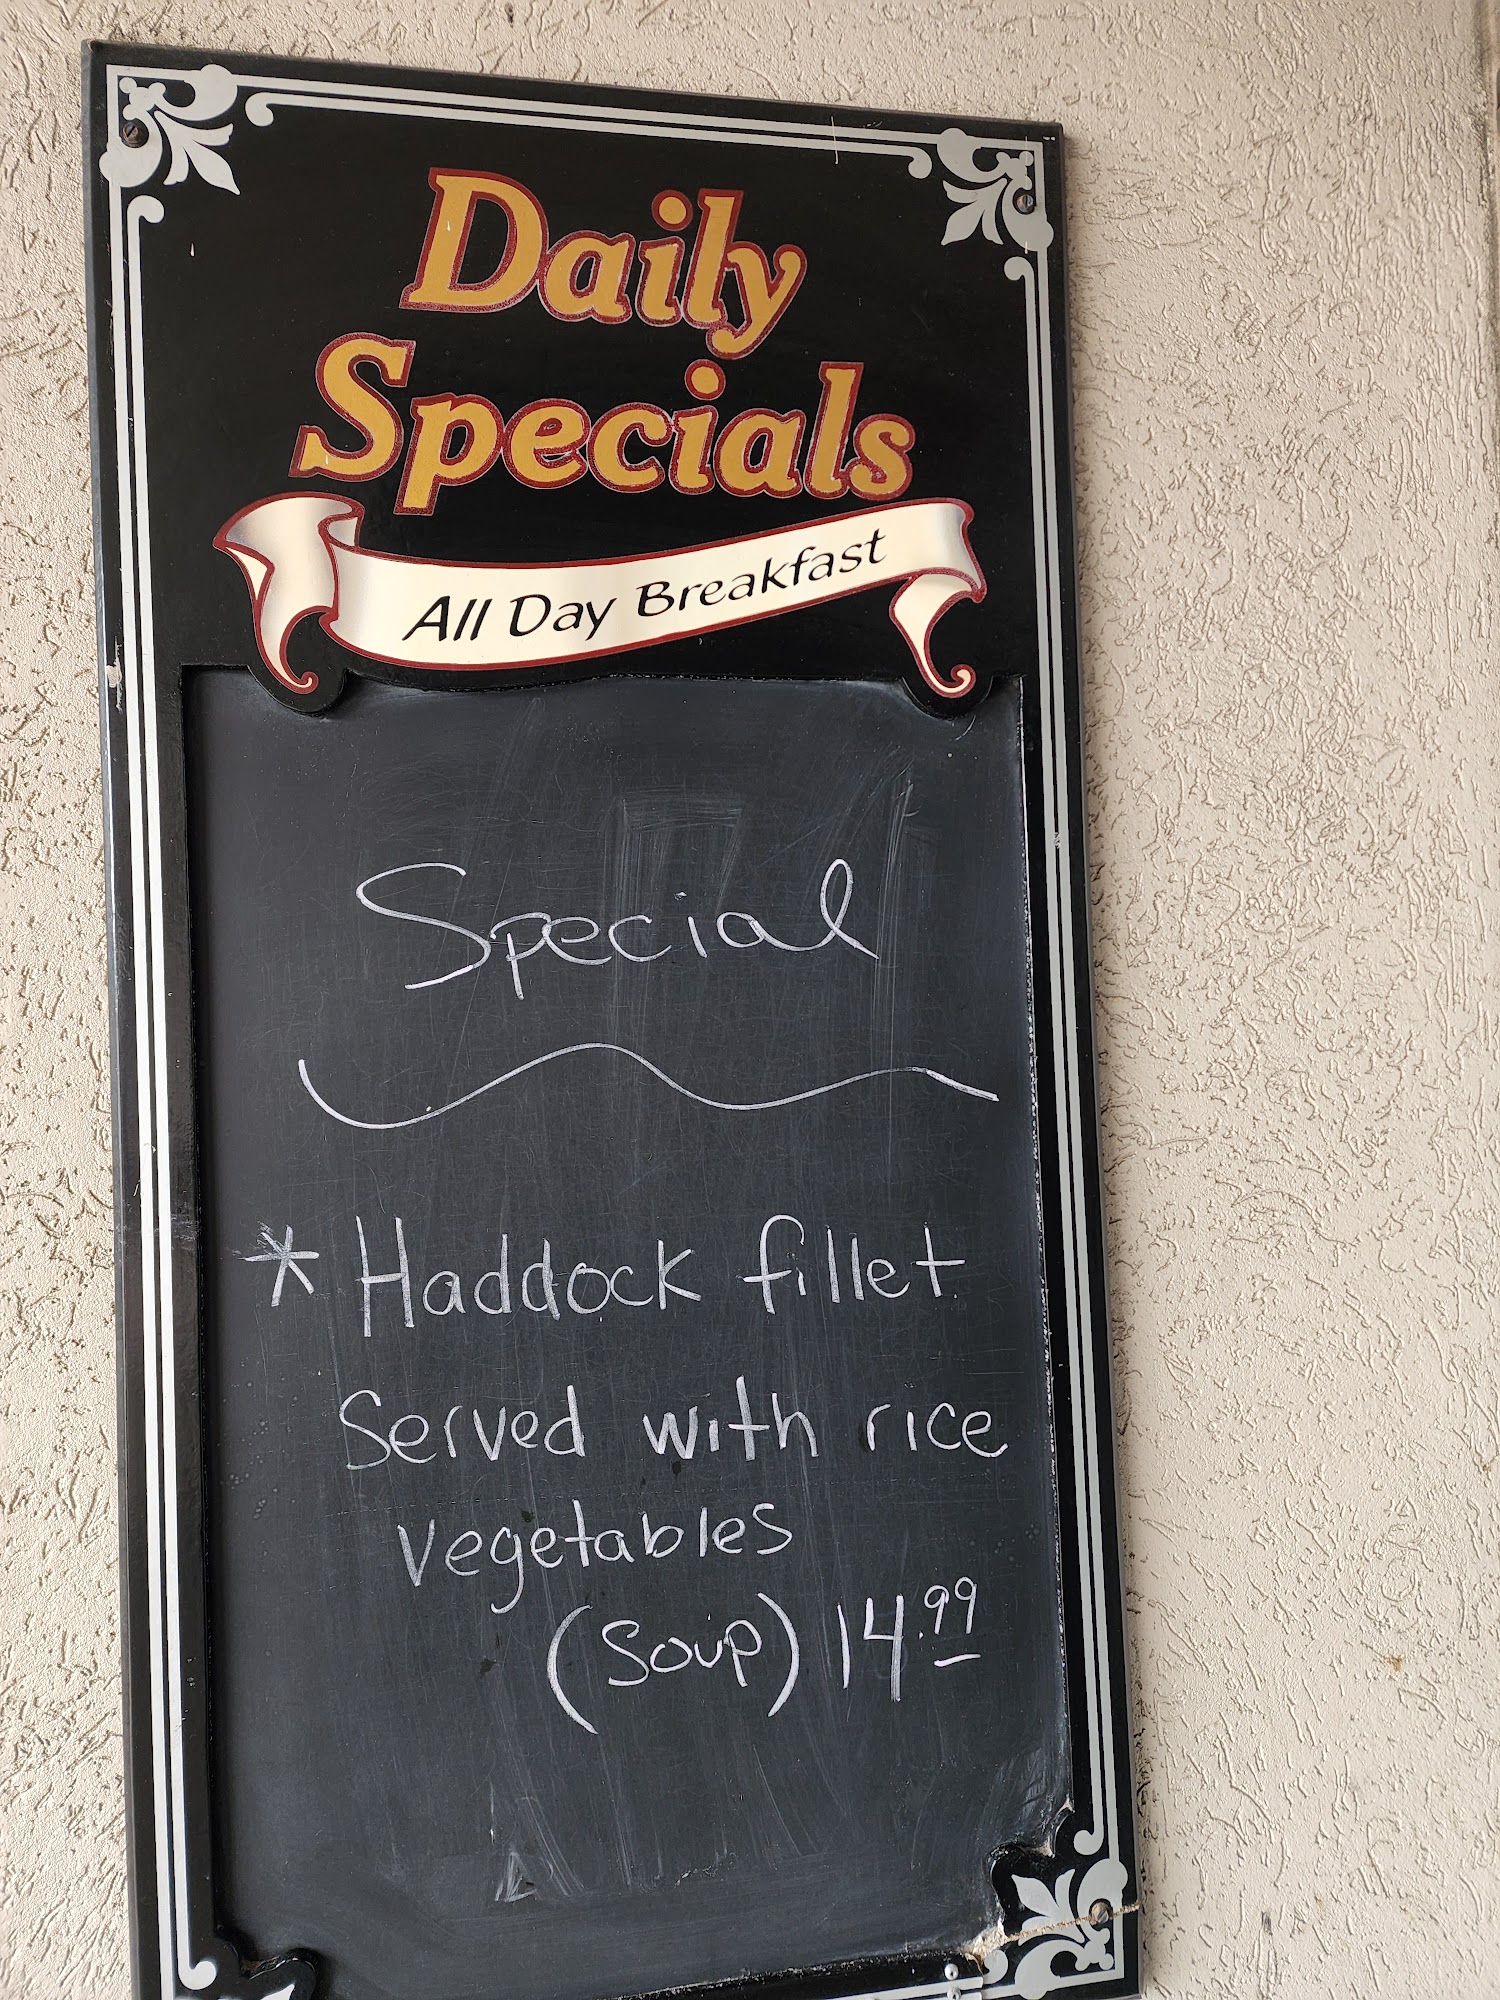 Daily
Specials
All Day Breakfast
Special
* Haddock fillet
Served with rice
vegetables
(Soup) 14.99